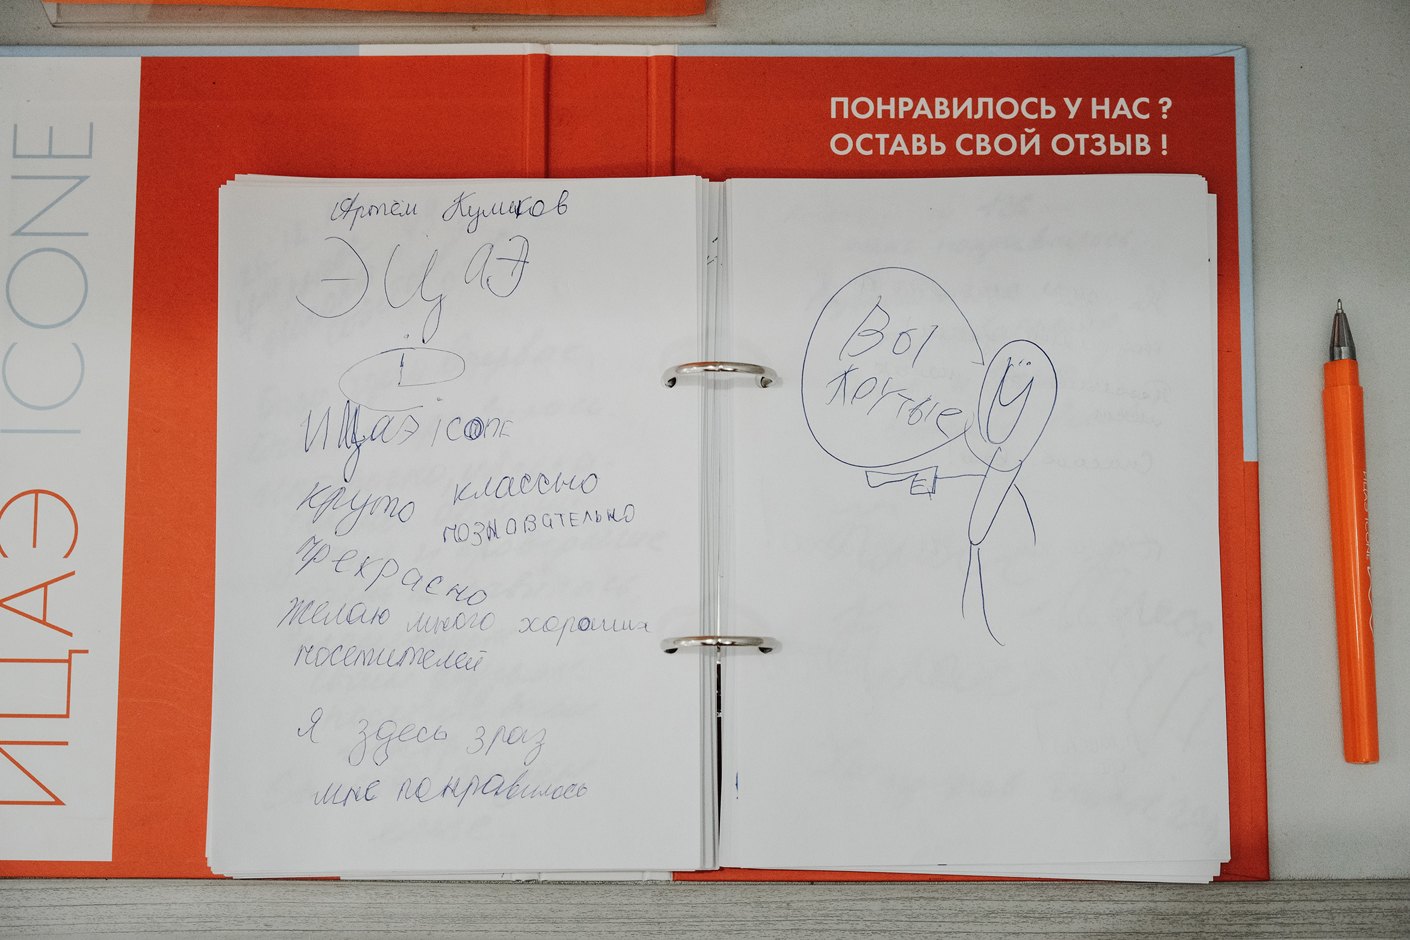 ИЦАЭ ICONE
ПОНРАВИЛОСЬ У НАС ?
ОСТАВЬ СВОЙ ОТЗЫВ !
Артём Куликов
ЭЦАЭ
i
ИЦАЭ ICONE
круто классно
познавательно
прекрасно
желаю много хороших
посетителей
Я здесь зраз
мне понравилось
Вы
крутые